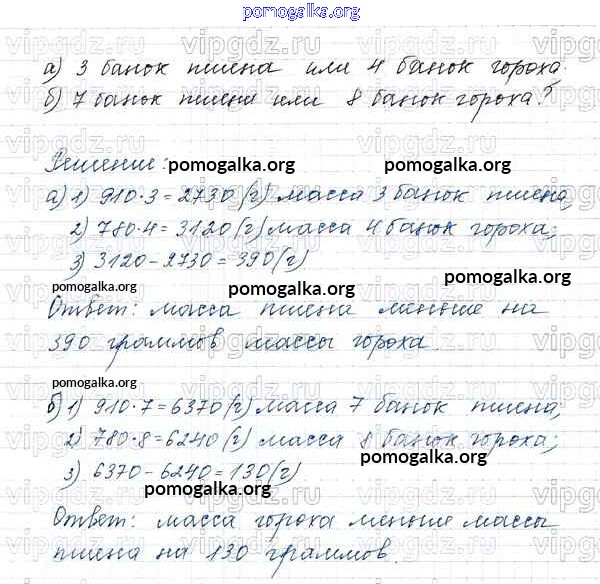 pomogalka.org
а) 3 банок пшена или 4 банок гороха.
б) 7 банок пшена или 8 банок гороха?
Решение:
pomogalka.org pomogalka.org
а) 1) 910·3=2730(г) масса 3 банок пшена,
2) 780·4=3120(г) масса 4 банок гороха;
3) 3120-2730=390(г)
pomogalka.org pomogalka.org
Ответ: масса пшена меньше на
390 граммов массы гороха
pomogalka.org
б) 1) 910·7=6370(г) масса 7 банок пшена,
2) 780·8=6240(г) масса 8 банок гороха;
pomogalka.org
3) 6370-6240=130(г)
pomogalka.org
Ответ: масса гороха меньше массы
пшена на 130 граммов.
pomogalka.org
vipgdz.ru